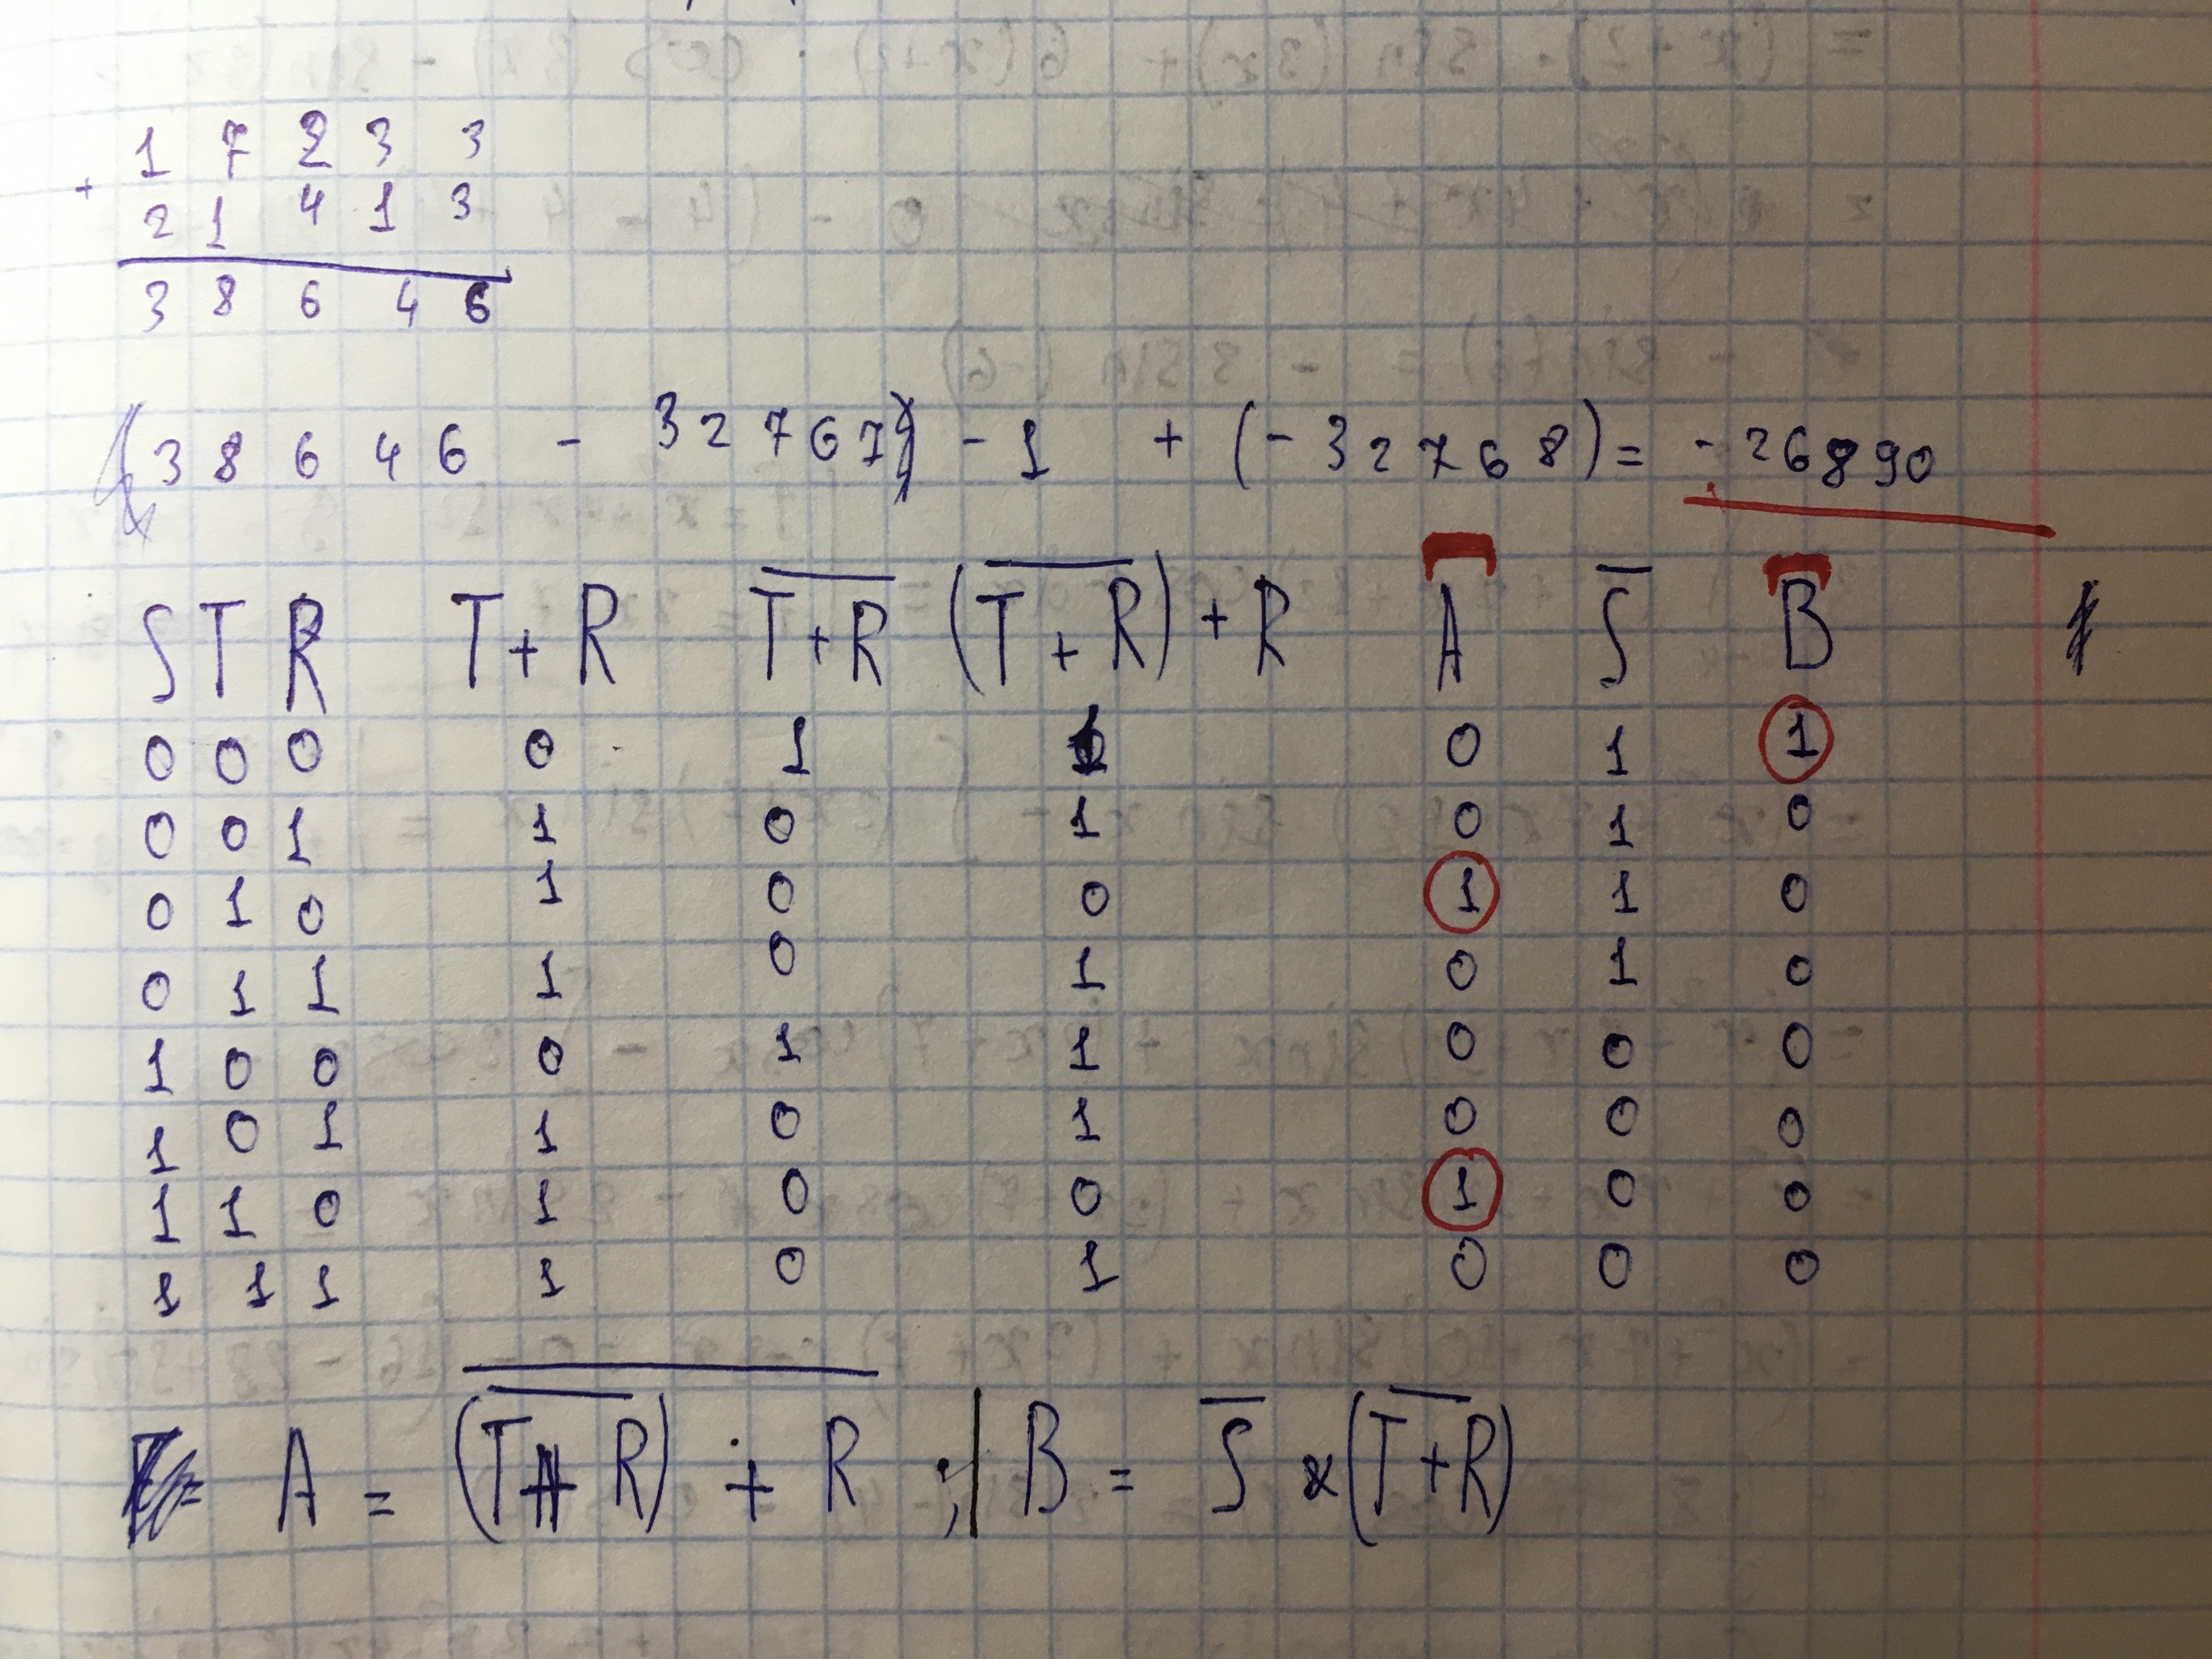 1 7 2 3 3
+
2 1 4 1 3
3 8 6 4 6
(38646 - 32767) - 1 + (-32768) = -26890
S T R T+R T̅+̅R̅ (T̅+̅R̅)+R A S̅ B
0 0 0 0 1 1 0 1 1
0 0 1 1 0 1 0 1 0
0 1 0 1 0 0 1 1 0
0 1 1 1 0 1 0 1 0
1 0 0 0 1 1 0 0 0
1 0 1 1 0 1 0 0 0
1 1 0 1 0 0 1 0 0
1 1 1 1 0 1 0 0 0
A = (̅T̅+̅R̅)̅ ̅+̅ ̅R̅ ; | B = S̅ × (T̅+̅R̅)